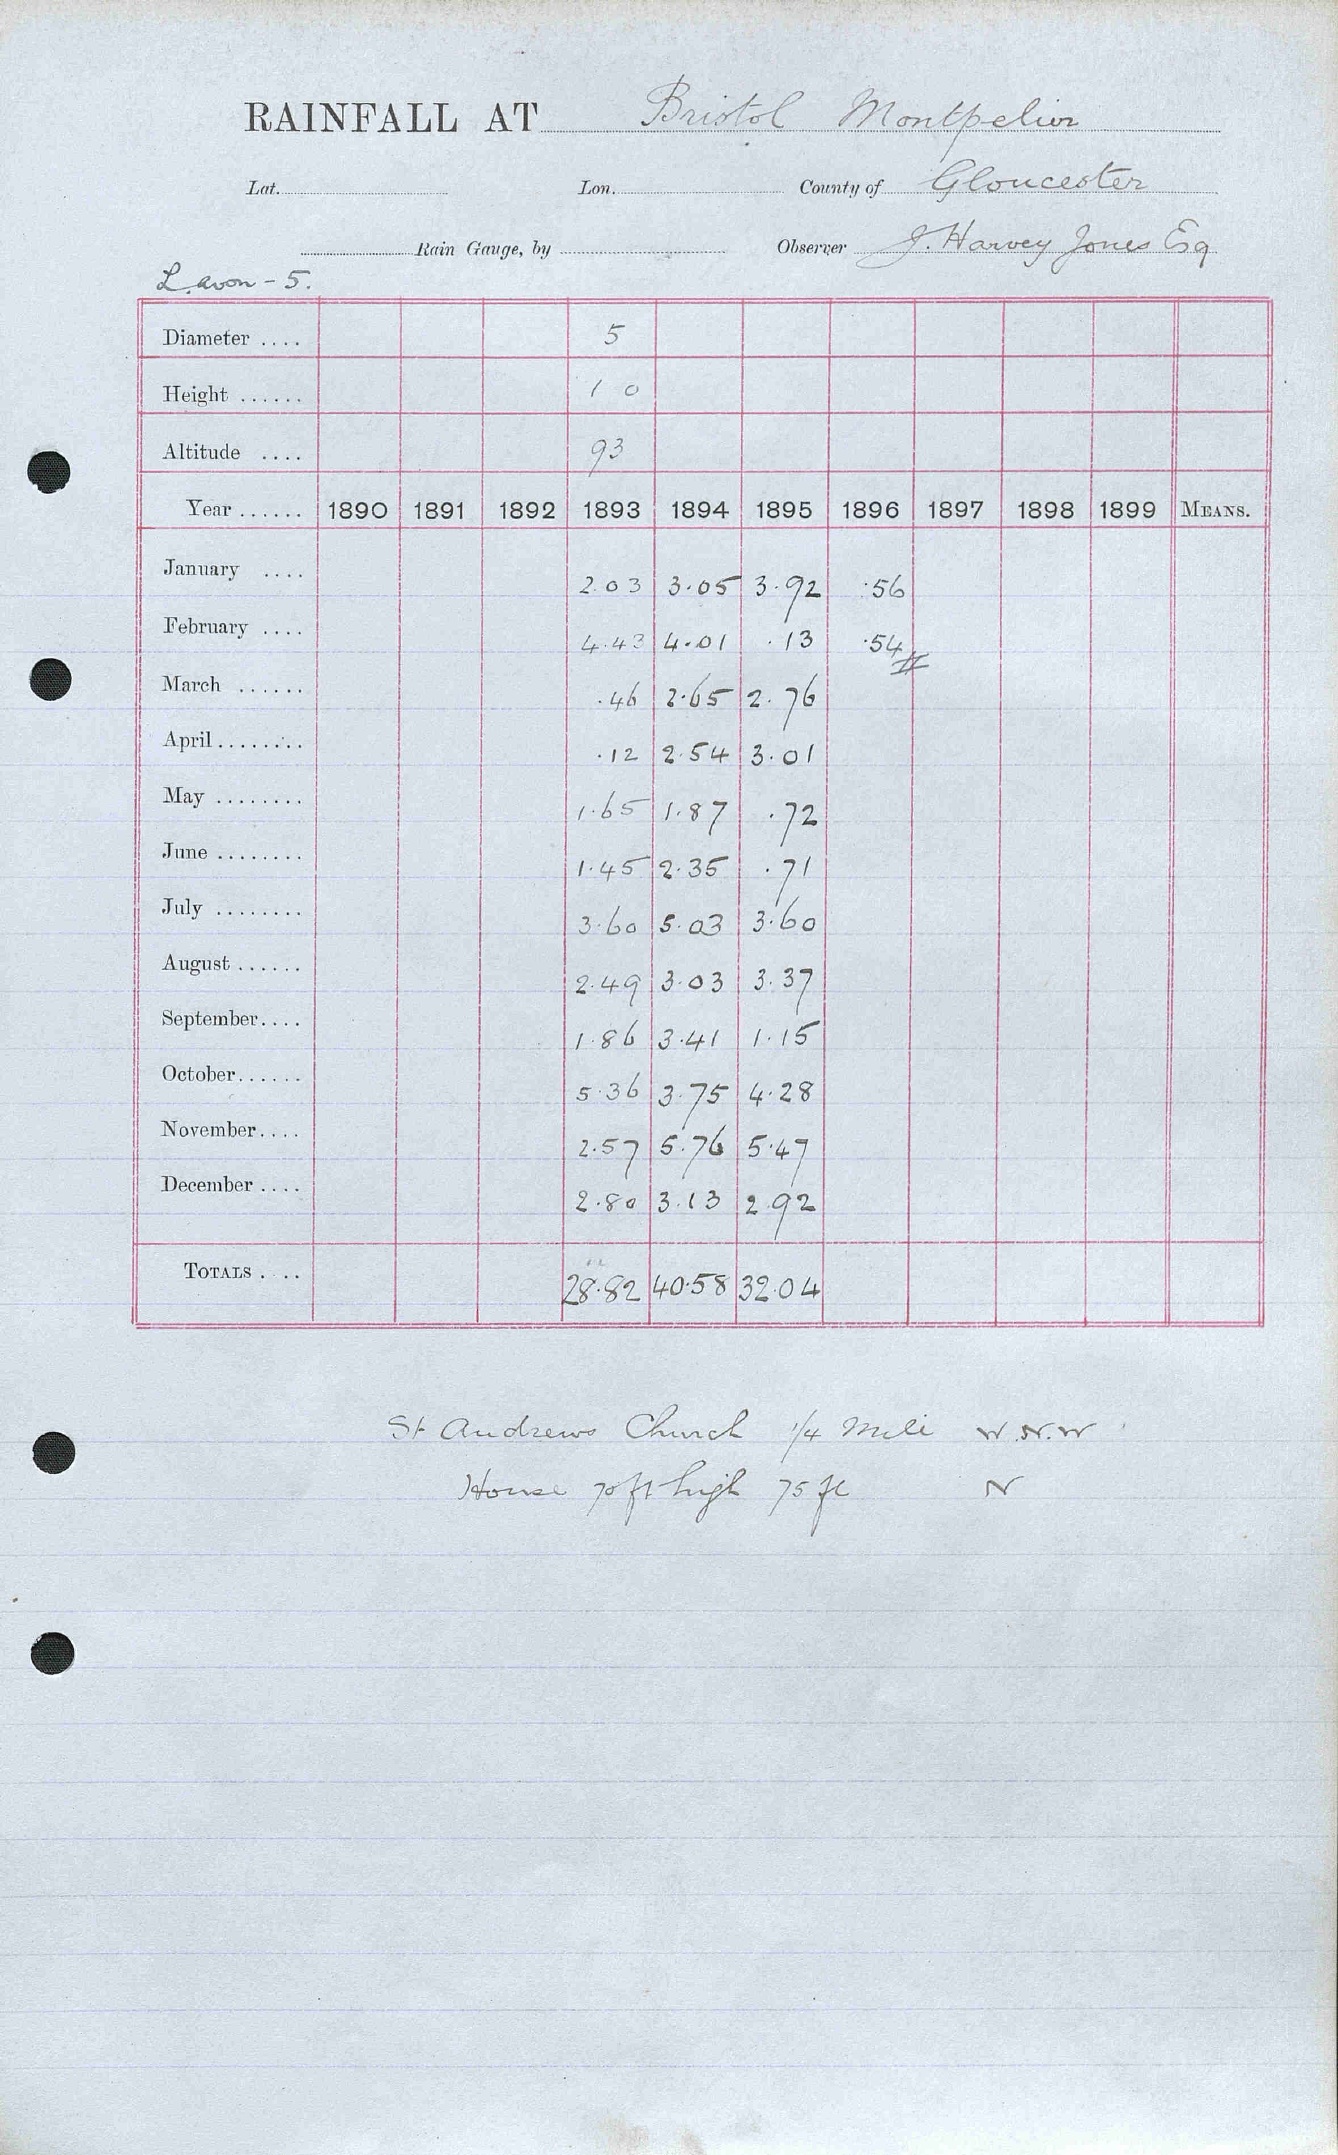 RAINFALL AT Bristol Montpelier
Lat. Lon. County of Gloucester
Rain Gauge, by Observer J. Harvey Jones Esq
L. avon - 5.
Diameter .... 5
Height ...... 1 0
Altitude .... 93
Year ...... 1890 1891 1892 1893 1894 1895 1896 1897 1898 1899 MEANS.
January .... 2.03 3.05 3.92 .56
February .... 4.43 4.01 .13 .54
March ...... .46 2.65 2.76
April ........ .12 2.54 3.01
May ........ 1.65 1.87 .72
June ........ 1.45 2.35 .71
July ........ 3.60 5.03 3.60
August ...... 2.49 3.03 3.37
September.... 1.86 3.41 1.15
October...... 5.36 3.75 4.28
November.... 2.57 5.76 5.47
December .... 2.80 3.13 2.92
TOTALS .... 28.82 40.58 32.04
St Andrews Church 1/4 Mile W.N.W
House 70 ft high 75 ft N